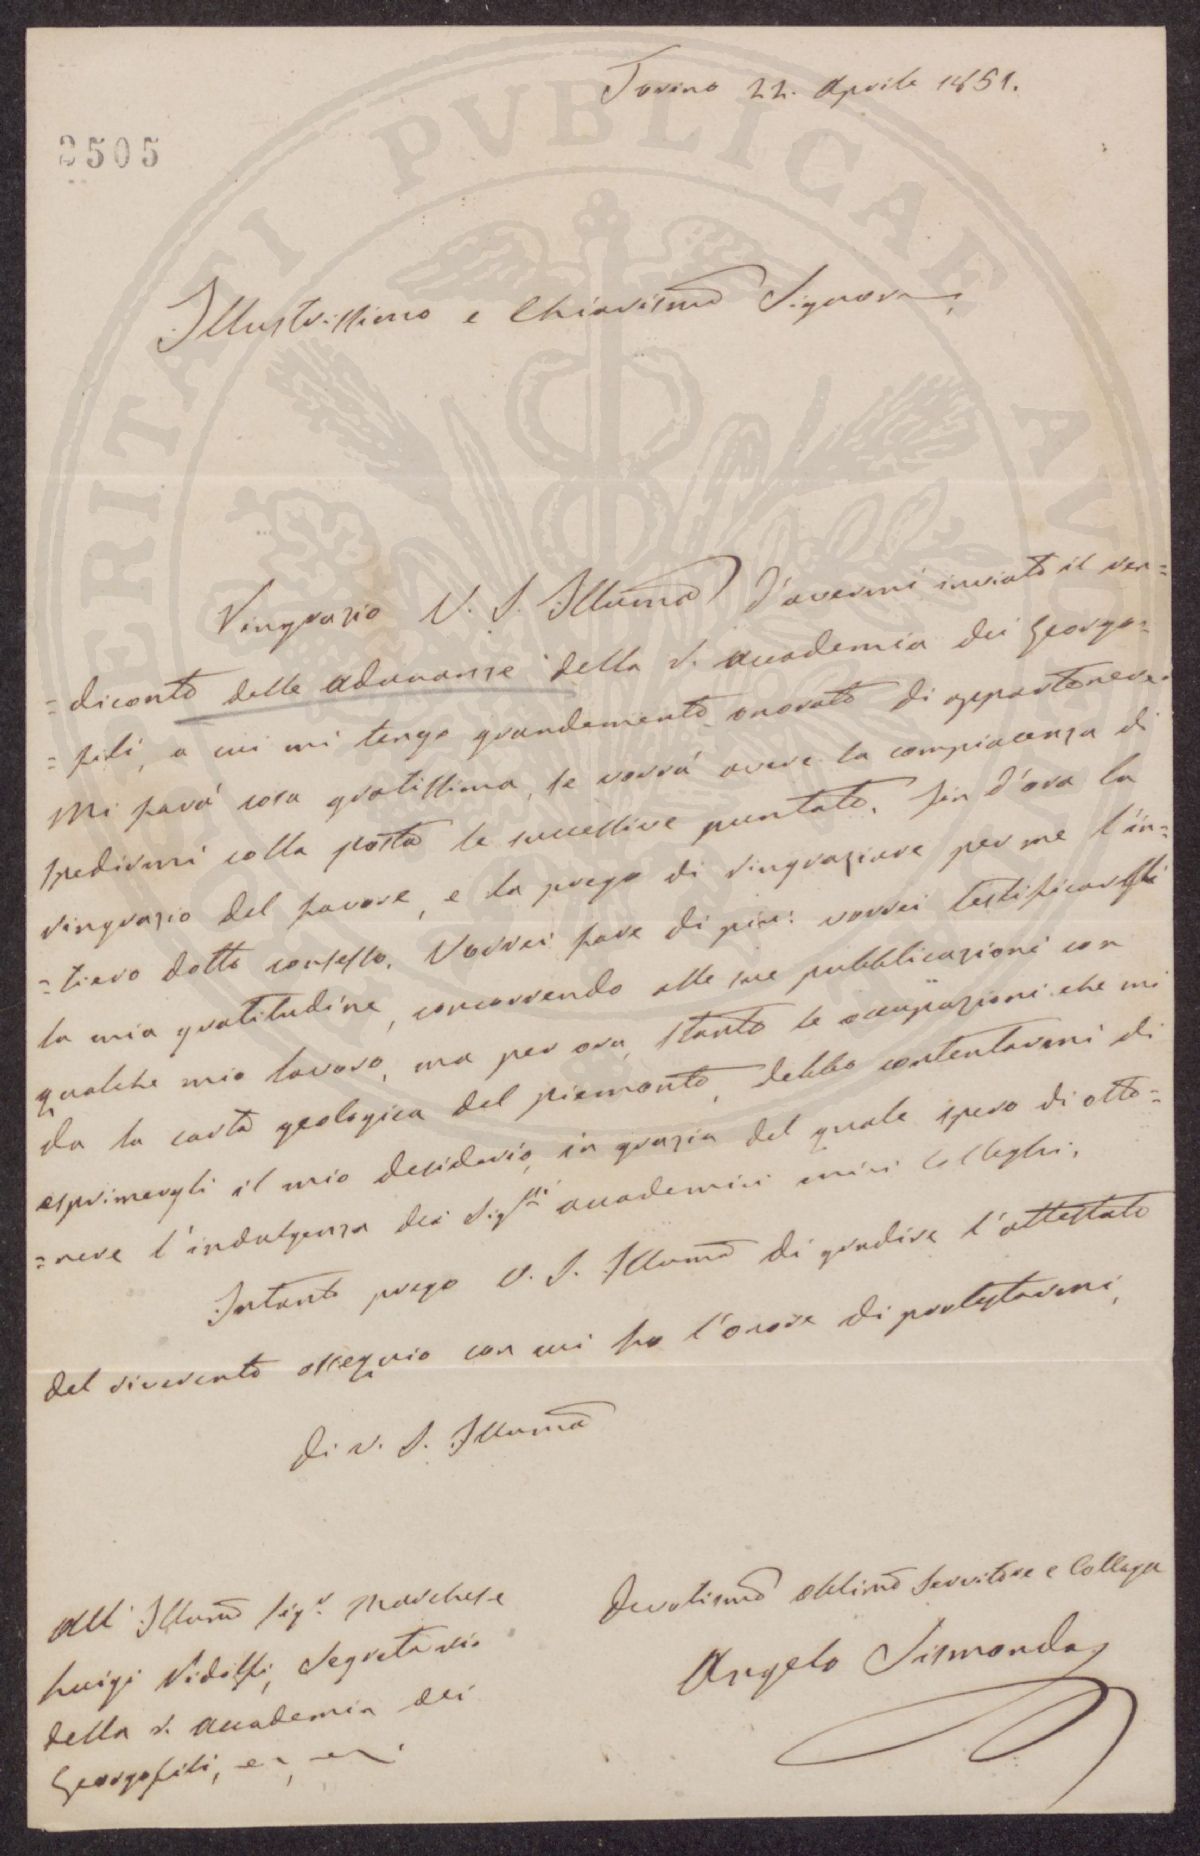 Torino 22. Aprile 1851.
2505
Illustrissimo e Chiarismo Signore,
Ringrazio V. S. Illuma d'avermi inviato il ren=
=diconto delle adunanze della R. Accademia dei Georgo=
=fili, a cui mi tengo grandemente onorato di appartenere.
Mi farà cosa gratissima, se vorrà avere la compiacenza di
spedirmi colla posta le successive puntate. Fin d'ora la
ringrazio del favore, e la prego di ringraziare per me l'in=
=tiero dotto consesso. Vorrei fare di più: vorrei testificargli
la mia gratitudine, concorrendo alle sue pubblicazioni con
qualche mio lavoro, ma per ora, stante le occupazioni che mi
da la carta geologica del piemonte, debbo contentarmi di
esprimergli il mio desiderio, in grazia del quale spero di otte=
=nere l'indulgenza dei Sigri accademici miei Colleghi.
Intanto prego V. S. Illuma di gradire l'attestato
del riverente ossequio con cui ho l'onore di protestarmi,
Di V. S. Illuma
Devotismo obblimo Servitore e Collega
Angelo Sismonda
All' Illumo Sigr. Marchese
Luigi Ridolfi, Segretario
della R. Accademia dei
Georgofili,
PVBLICAE